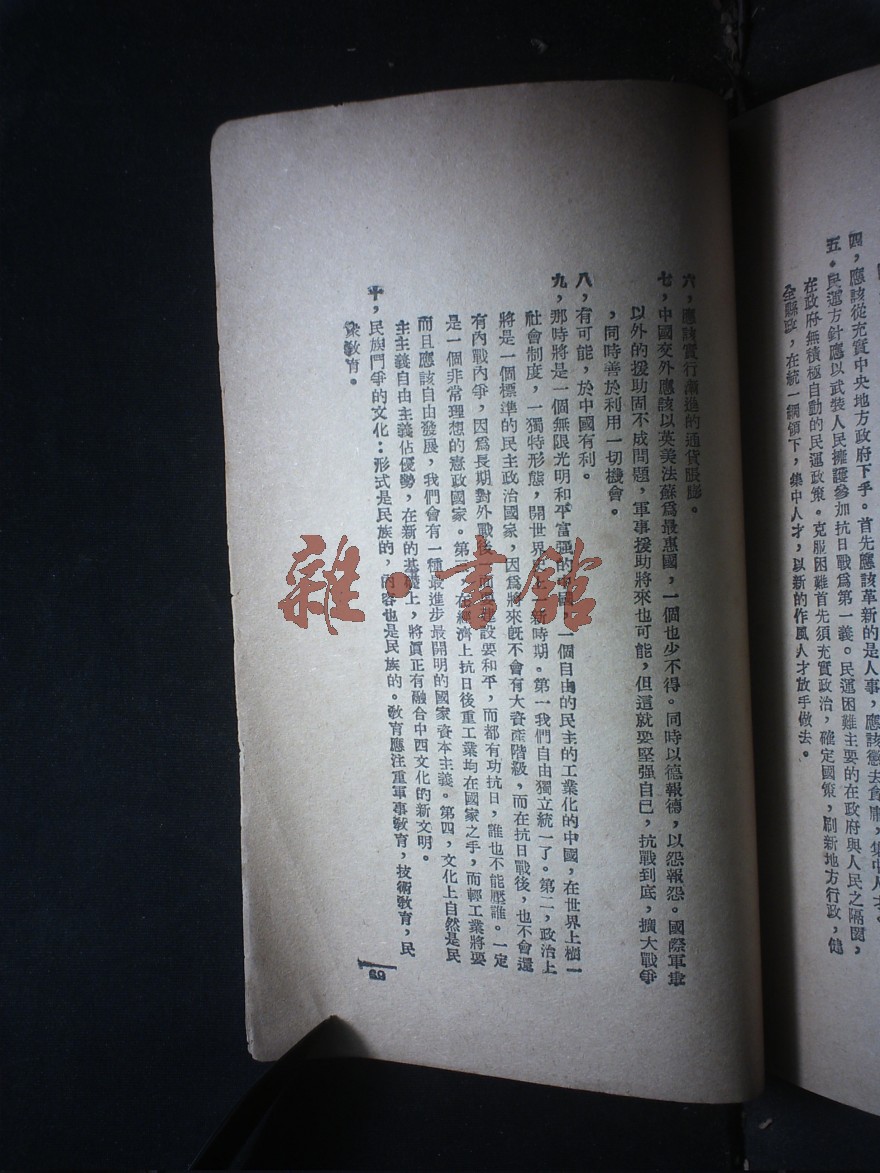 四，應該從充實中央地方政府下手。首先應該革新的是人事，應該懲去貪庸，集中人才。
五．民運方針應以武裝人民擁護參加抗日戰爲第一義。民運困難主要的在政府與人民之隔閡，
在政府無積極自動的民運政策。克服困難首先須充實政治，確定國策，刷新地方行政，健
全縣政，在統一綱領下，集中人才，以新的作風人才放手做去。
六，應該實行漸進的通貨賬膨。
七，中國交外應該以英美法蘇爲最惠國，一個也少不得。同時以德報德，以怨報怨。國際軍
以外的援助固不成問題，軍事援助將來也可能，但這就要堅强自己，抗戰到底，擴大戰爭
，同時善於利用一切機會。
八，有可能，於中國有利。
九，那時將是一個無限光明和平富强的中國，一個自由的民主的工業化的中國，在世界上樹一
社會制度，一獨特形態，開世界史上一新時期。第一我們自由獨立統一了。第二，政治上
將是一個標準的民主政治國家，因爲將來旣不會有大資產階級，而在抗日戰後，也不會還
有內戰內爭，因爲長期對外戰後一面要建設要和平，而都有功抗日，誰也不能壓誰。一定
是一個非常理想的憲政國家。第三，在經濟上抗日後重工業均在國家之手，而輕工業將要
而且應該自由發展，我們會有一種最進步最開明的國家資本主義。第四，文化上自然是民
主主義自由主義佔優勢，在新的基礎上，將眞正有融合中西文化的新文明。
十，民族鬥爭的文化：形式是民族的，內容也是民族的。敎育應注重軍事敎育，技術敎育，民
衆敎育。
69
雜·書館